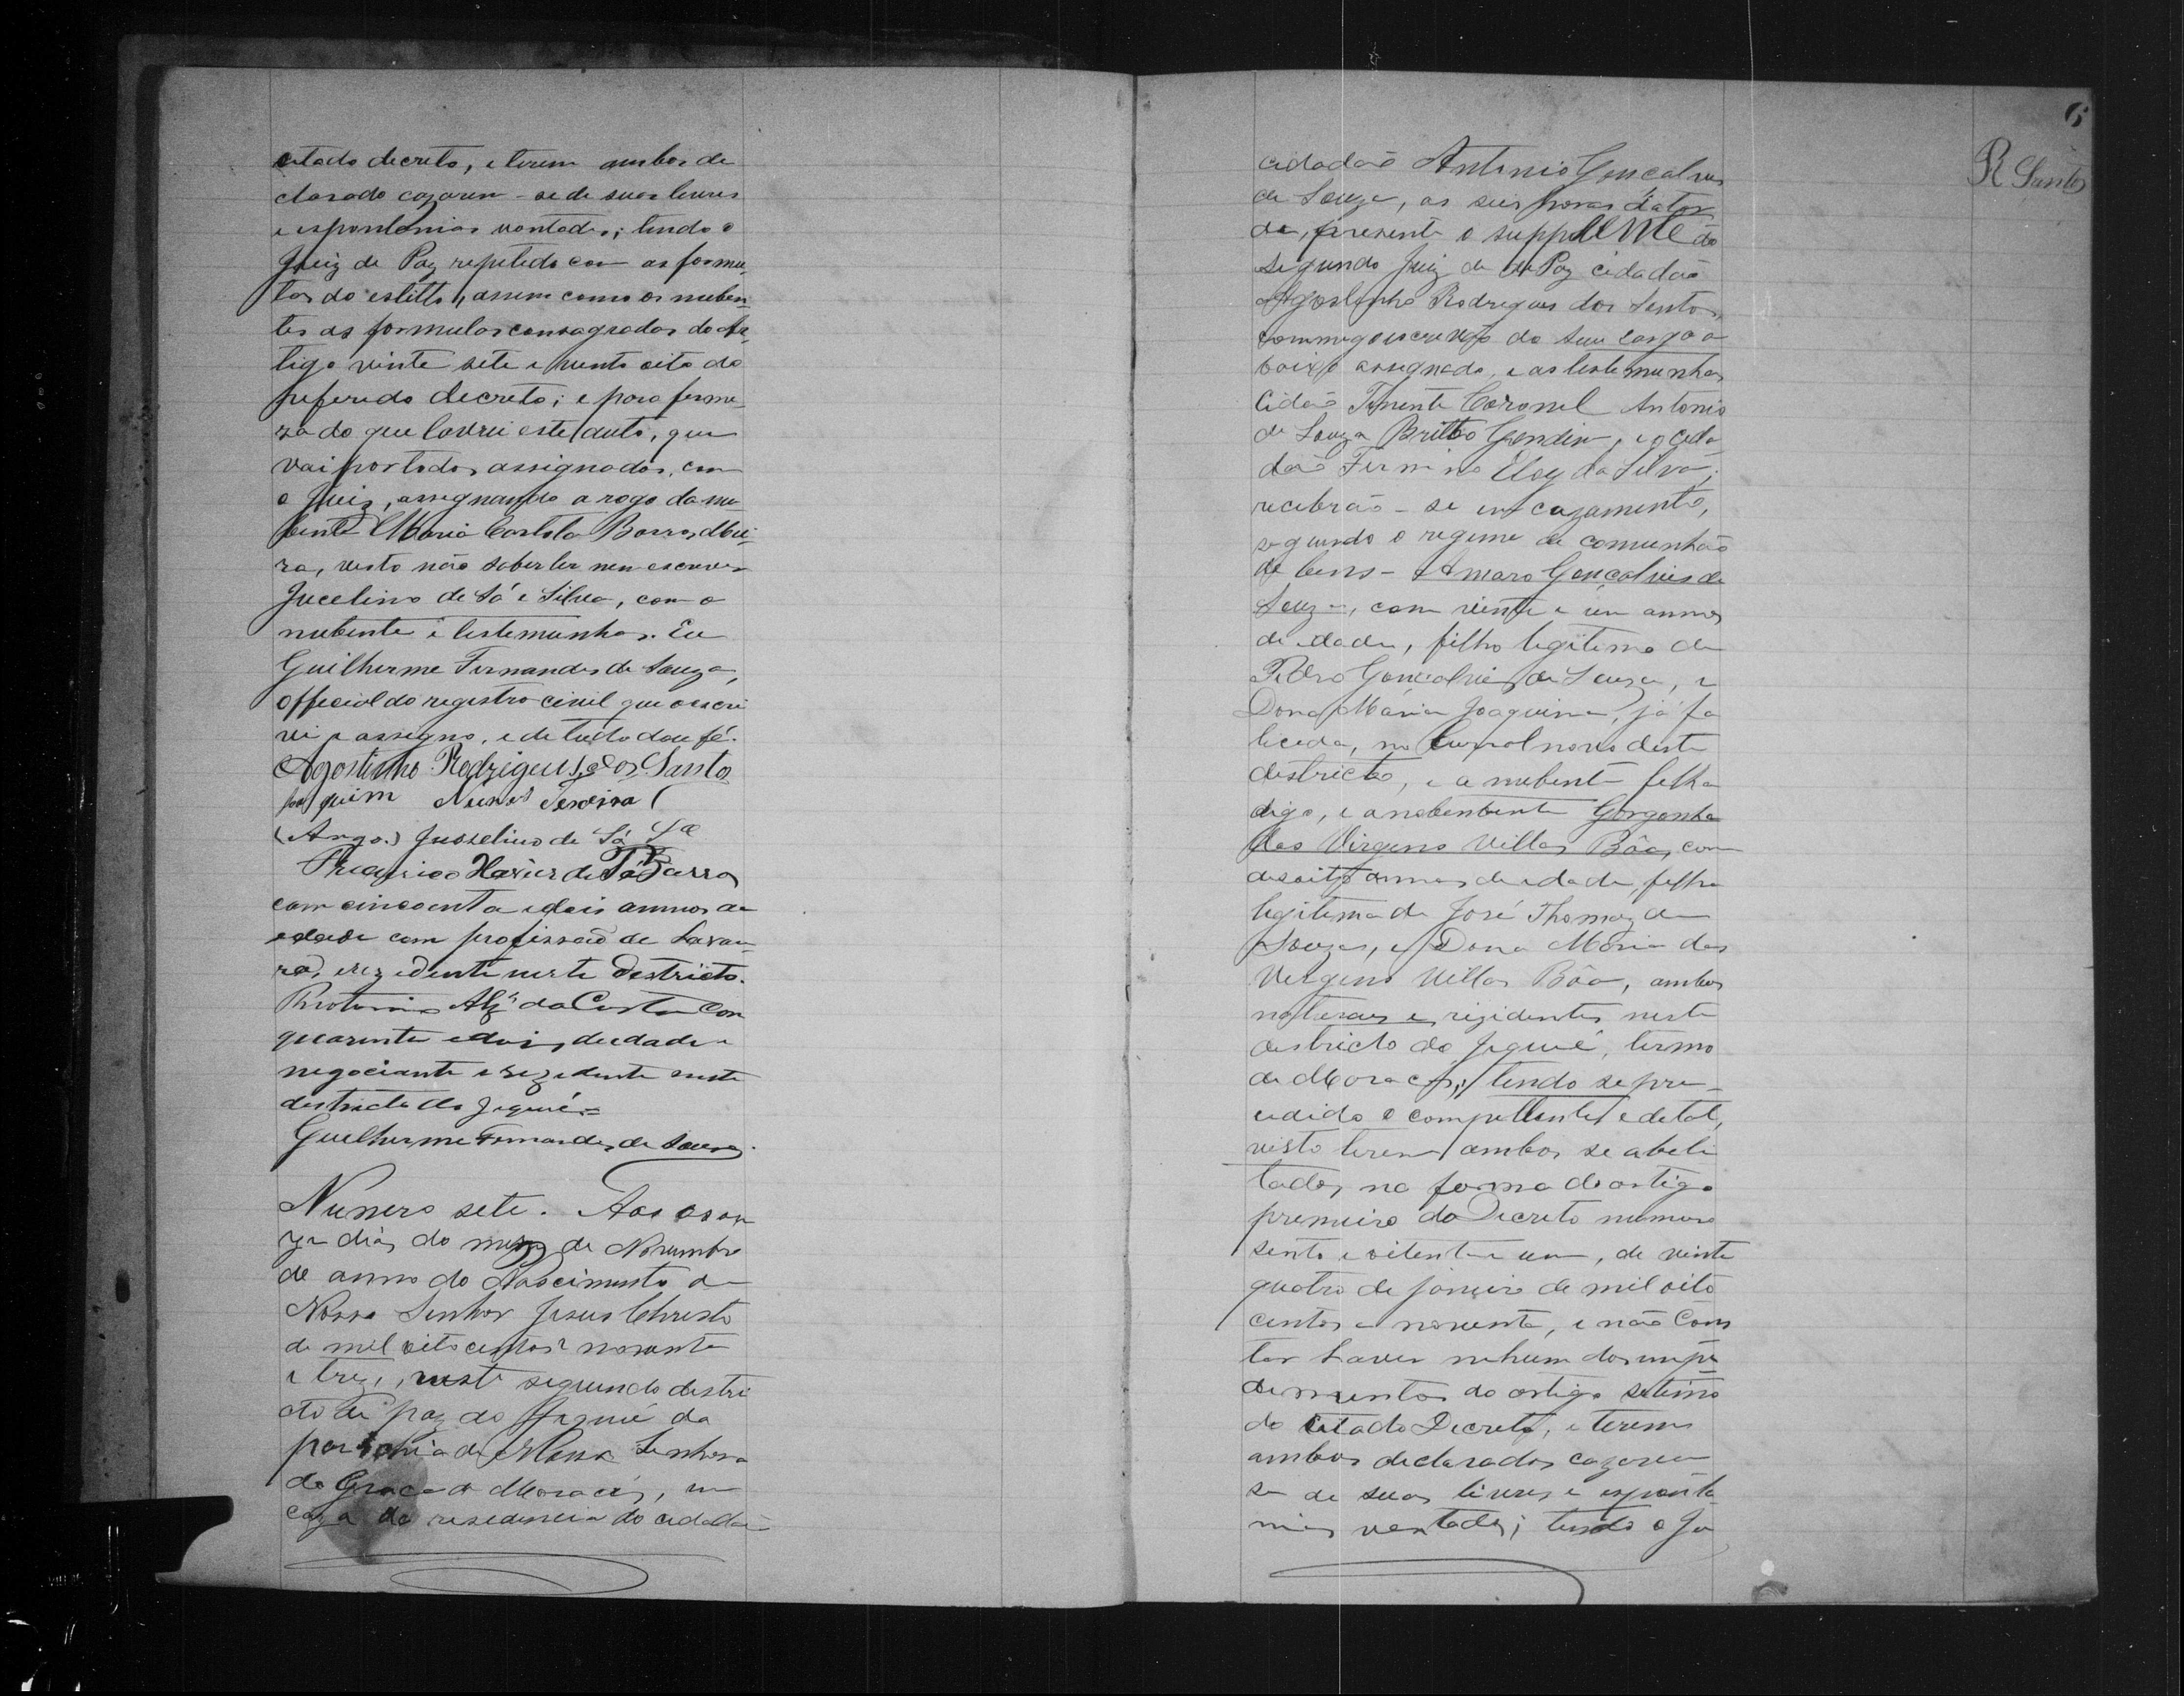 citado decreto, e terem ambos de
clarado cazarem-se de suas livres
e espontonias vontades; tendo o
Juiz de Paz repetido com as formu
las do estillo, assim como os nuben
tes as formulas consagradas do Ar
tigo vinte sete e vinte oito do
referido decreto; e para firme
za do que lavrei este auto, que
vai por todos assignados, com
o Juiz, assignando a rogo da nu
bente Maria Carlota Barros Mei
ra, visto não saber ler nem escrever
Jucelino de Sá e Silva, com o
nubente e testemunhas. Eu
Guilherme Fernandes de Souza,
official do registro civil que escri
vi e assigno, e de tudo dou fé.
Agostinho Rodrigeus dos Santos
Joaquim Nunes
(Argo.) Jusselino de Sá Sª
Xavier de Sá Barros
com cincoenta e dois annos de
edade com profissão de Lavou
ra, e rezidente neste Destricto.
da Costa Com
quarenta e dois de edade
negociante e rezidente neste
destricto do Jequié =
Guilherme Fernandes de Souza.
Numero sete. Aos on
ze dias do mez de Novembro
de anno do Nascimento de
Nosso Senhor Jesus Christo
de mil oito centos e noventa
e trez, neste segundo destri
cto de paz do Jequié da
parochia de Nossa Senhora
da Graça de Maracás, em
caza de residencia do cidadão
6
R Santos
cidadão Antonio Gonçalves
de Souza, as seis horas da tar
de, presente o supplente do
segundo Juiz de de Paz cidadão
Agostinho Rodrigues dos Santos,
commigo escrivão do seu cargo a
baixo assignado, e as testemunhas
Cidão Tenente Coronel Antonio
de Souza Britto Gondin, e o cida
dão Firmino Eloy da Silva;
recebrão-se em cazamento,
segundo o regime de comunhão
de bens - Amaro Gonçalves de
Souza, com vinte e um annos
de edade, filho legitimo de
Pedro Gonçalves de Souza, e
Dona Maria Joaquina, já fa
lecida, no Curral novo deste
destricto, e a nubente filha
digo, e a nubente Gorgonha
das Virgens Villas Bôas, com
desoito annos de edade, filha
legitima de José Thomaz de
Souza, e Dona Maria das
Virgens Villas Bôa, ambos
naturaes e rezidentes neste
destricto do Jequié, termo
de Maracás; tendo se pre-
cedido o compettente edetal,
visto terem ambos se abeli
tados na forma do artigo
premeiro do Decreto numero
sento e oitenta e um, de vinte
quatro de janeiro de mil oito
centos e noventa, e não Cons
tar haver nehum dos impe
dimentos do artigo setimo
do citado Decreto, e terem
ambos declarados cazarem
se de suas livres e esponta
nias vontades; tendo o Ju